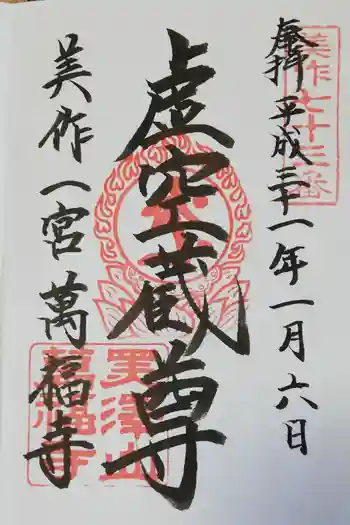 奉拝 平成三十一年一月六日
美作七十三番
虚空蔵尊
美作一宮 萬福寺
萬福寺